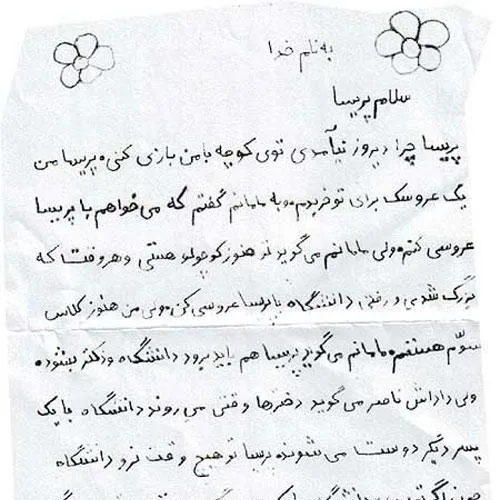 به نام خدا
سلام پریسا
پریسا چرا دیروز نیآمدی توی کوچه با من بازی کنی. پریسا من
یک عروسک برای تو خریدم. و به مامانم گفتم که می خواهم با پریسا
عروسی کنم. ولی مامانم می گوید تو هنوز کوچولو هستی و هر وقت که
بزرگ شدی و رفتی دانشگاه با پریسا عروسی کن. ولی من هنوز کلاس
سوّم هستم. مامانم می گوید پریسا هم باید برود دانشگاه و دکتر بشود.
ولی داداش ناصر می گوید دخترها وقتی می روند دانشگاه با یک
پسر دیگر دوست می شوند. پریسا تو هیچ وقت نرو دانشگاه